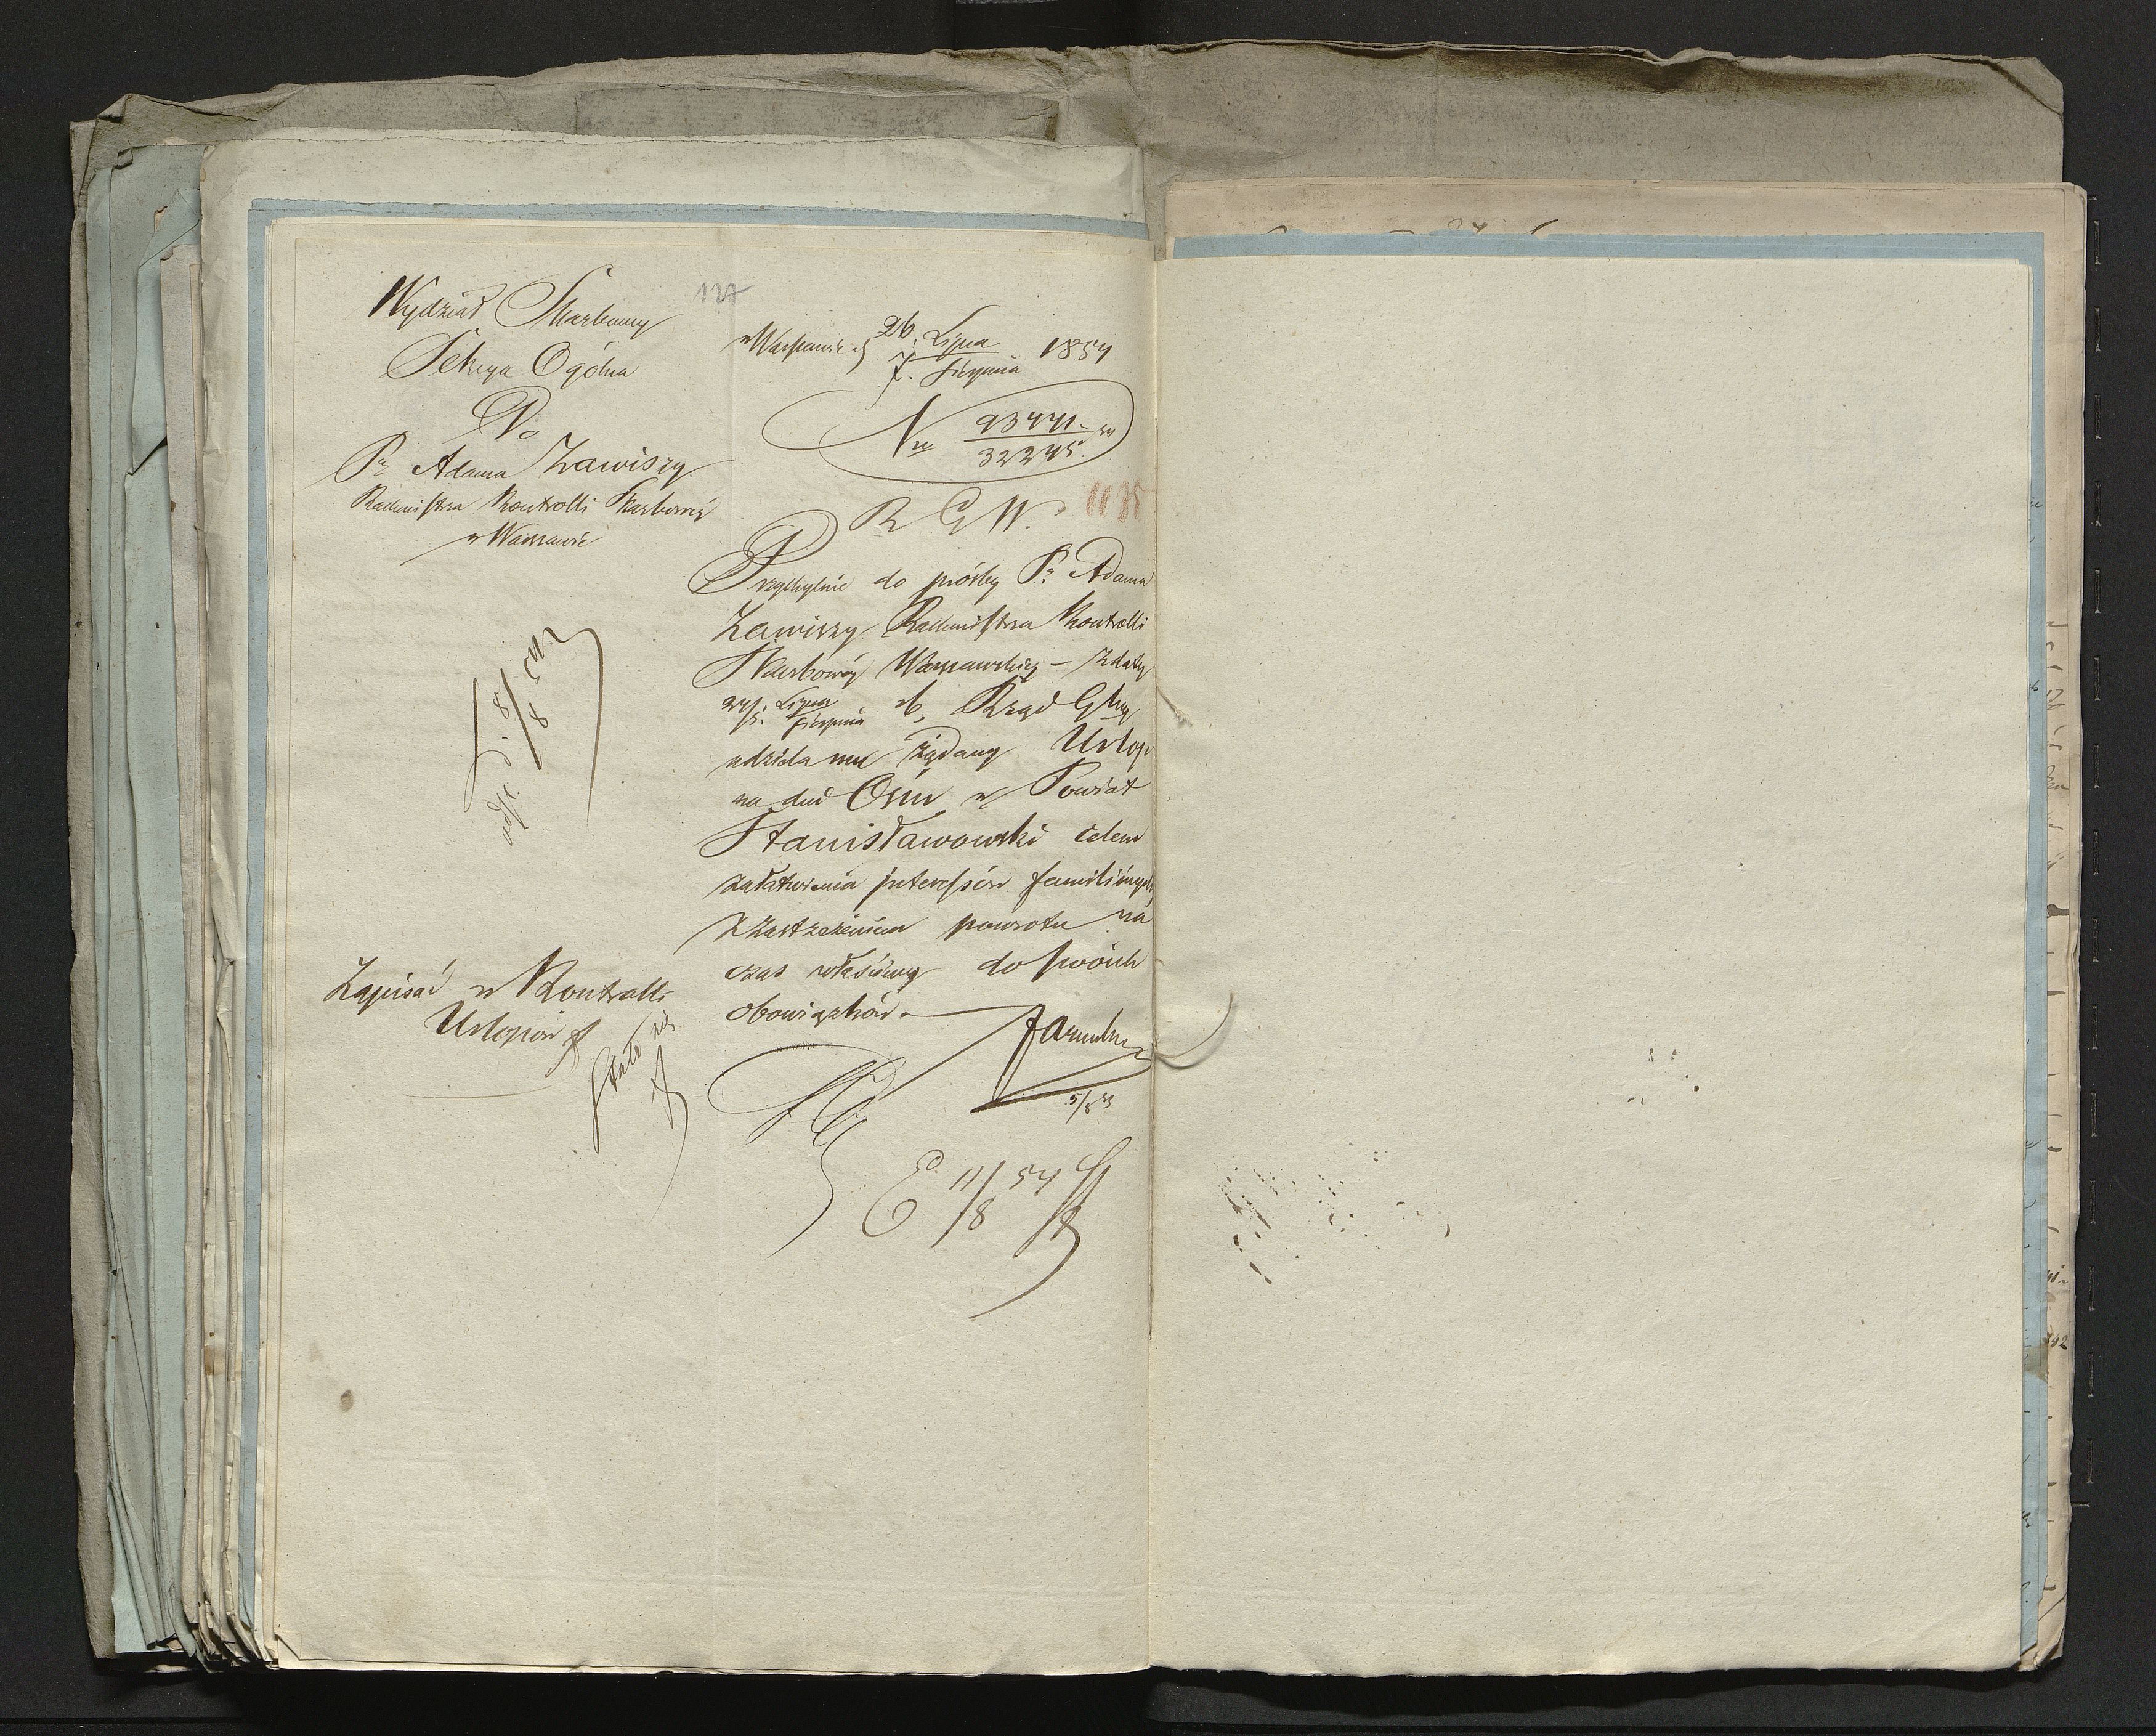 127
Wydział Skarbowy
Sekcya Ogólna
Do
Pa Adama Zawiszy
Rachmistrza Kontrolli Skarbowéj
w Warszawie
w Warszawie d. 26. Lipca 1854
7. Sierpnia
Nro 93441
32245.
R G W. 1135
Przychylnie do prośby Pa Adama
Zawiszy Rachmistrza Kontrolli
Skarbowéj Warszawskiej – z daty
24/5. Lipca Sierpnia rb, Rząd Gbny
udziela mu żądany Urlop
na dni Ośm w Powiat
Stanisławowski celem
załatwienia interessów familijnych
z zastrzeżeniem powrotu na
czas właściwy do swoich
obowiązków.
Zapisać w Kontrolli
Urlopów
Stało się
5/8 54
E 11/8 54